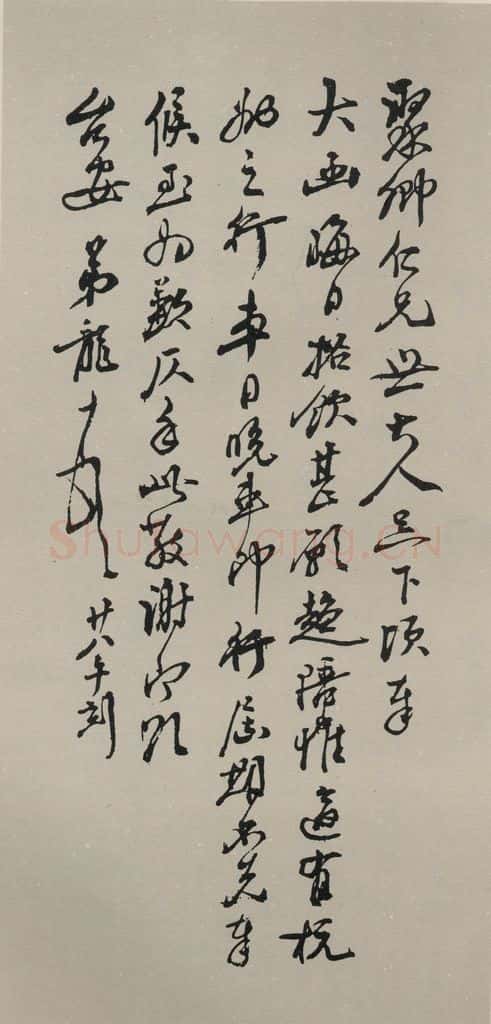 聚卿仁兄世大人足下頃奉
大函晦日招飲甚願趨陪惟適有杭
州之行本日晚車即行屆期不克奉
候至为歉仄手此敬謝即頌
台安 弟龍 廿八午刻
Shufawang.CN